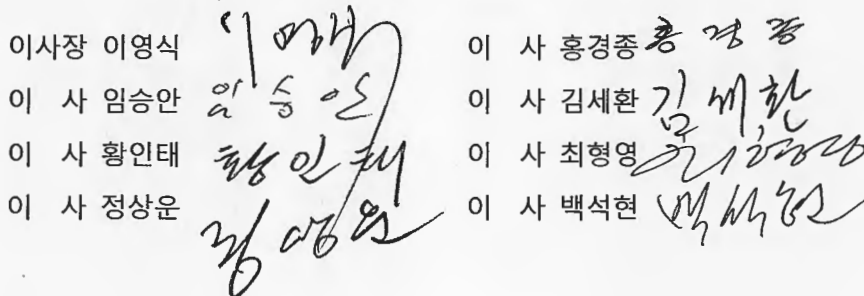 이사장 이영식 이영식
이 사 임승안 임승안
이 사 황인태 황인태
이 사 정상운 정상운
이 사 홍경종 홍경종
이 사 김세환 김세환
이 사 최형영 최형영
이 사 백석현 백석현